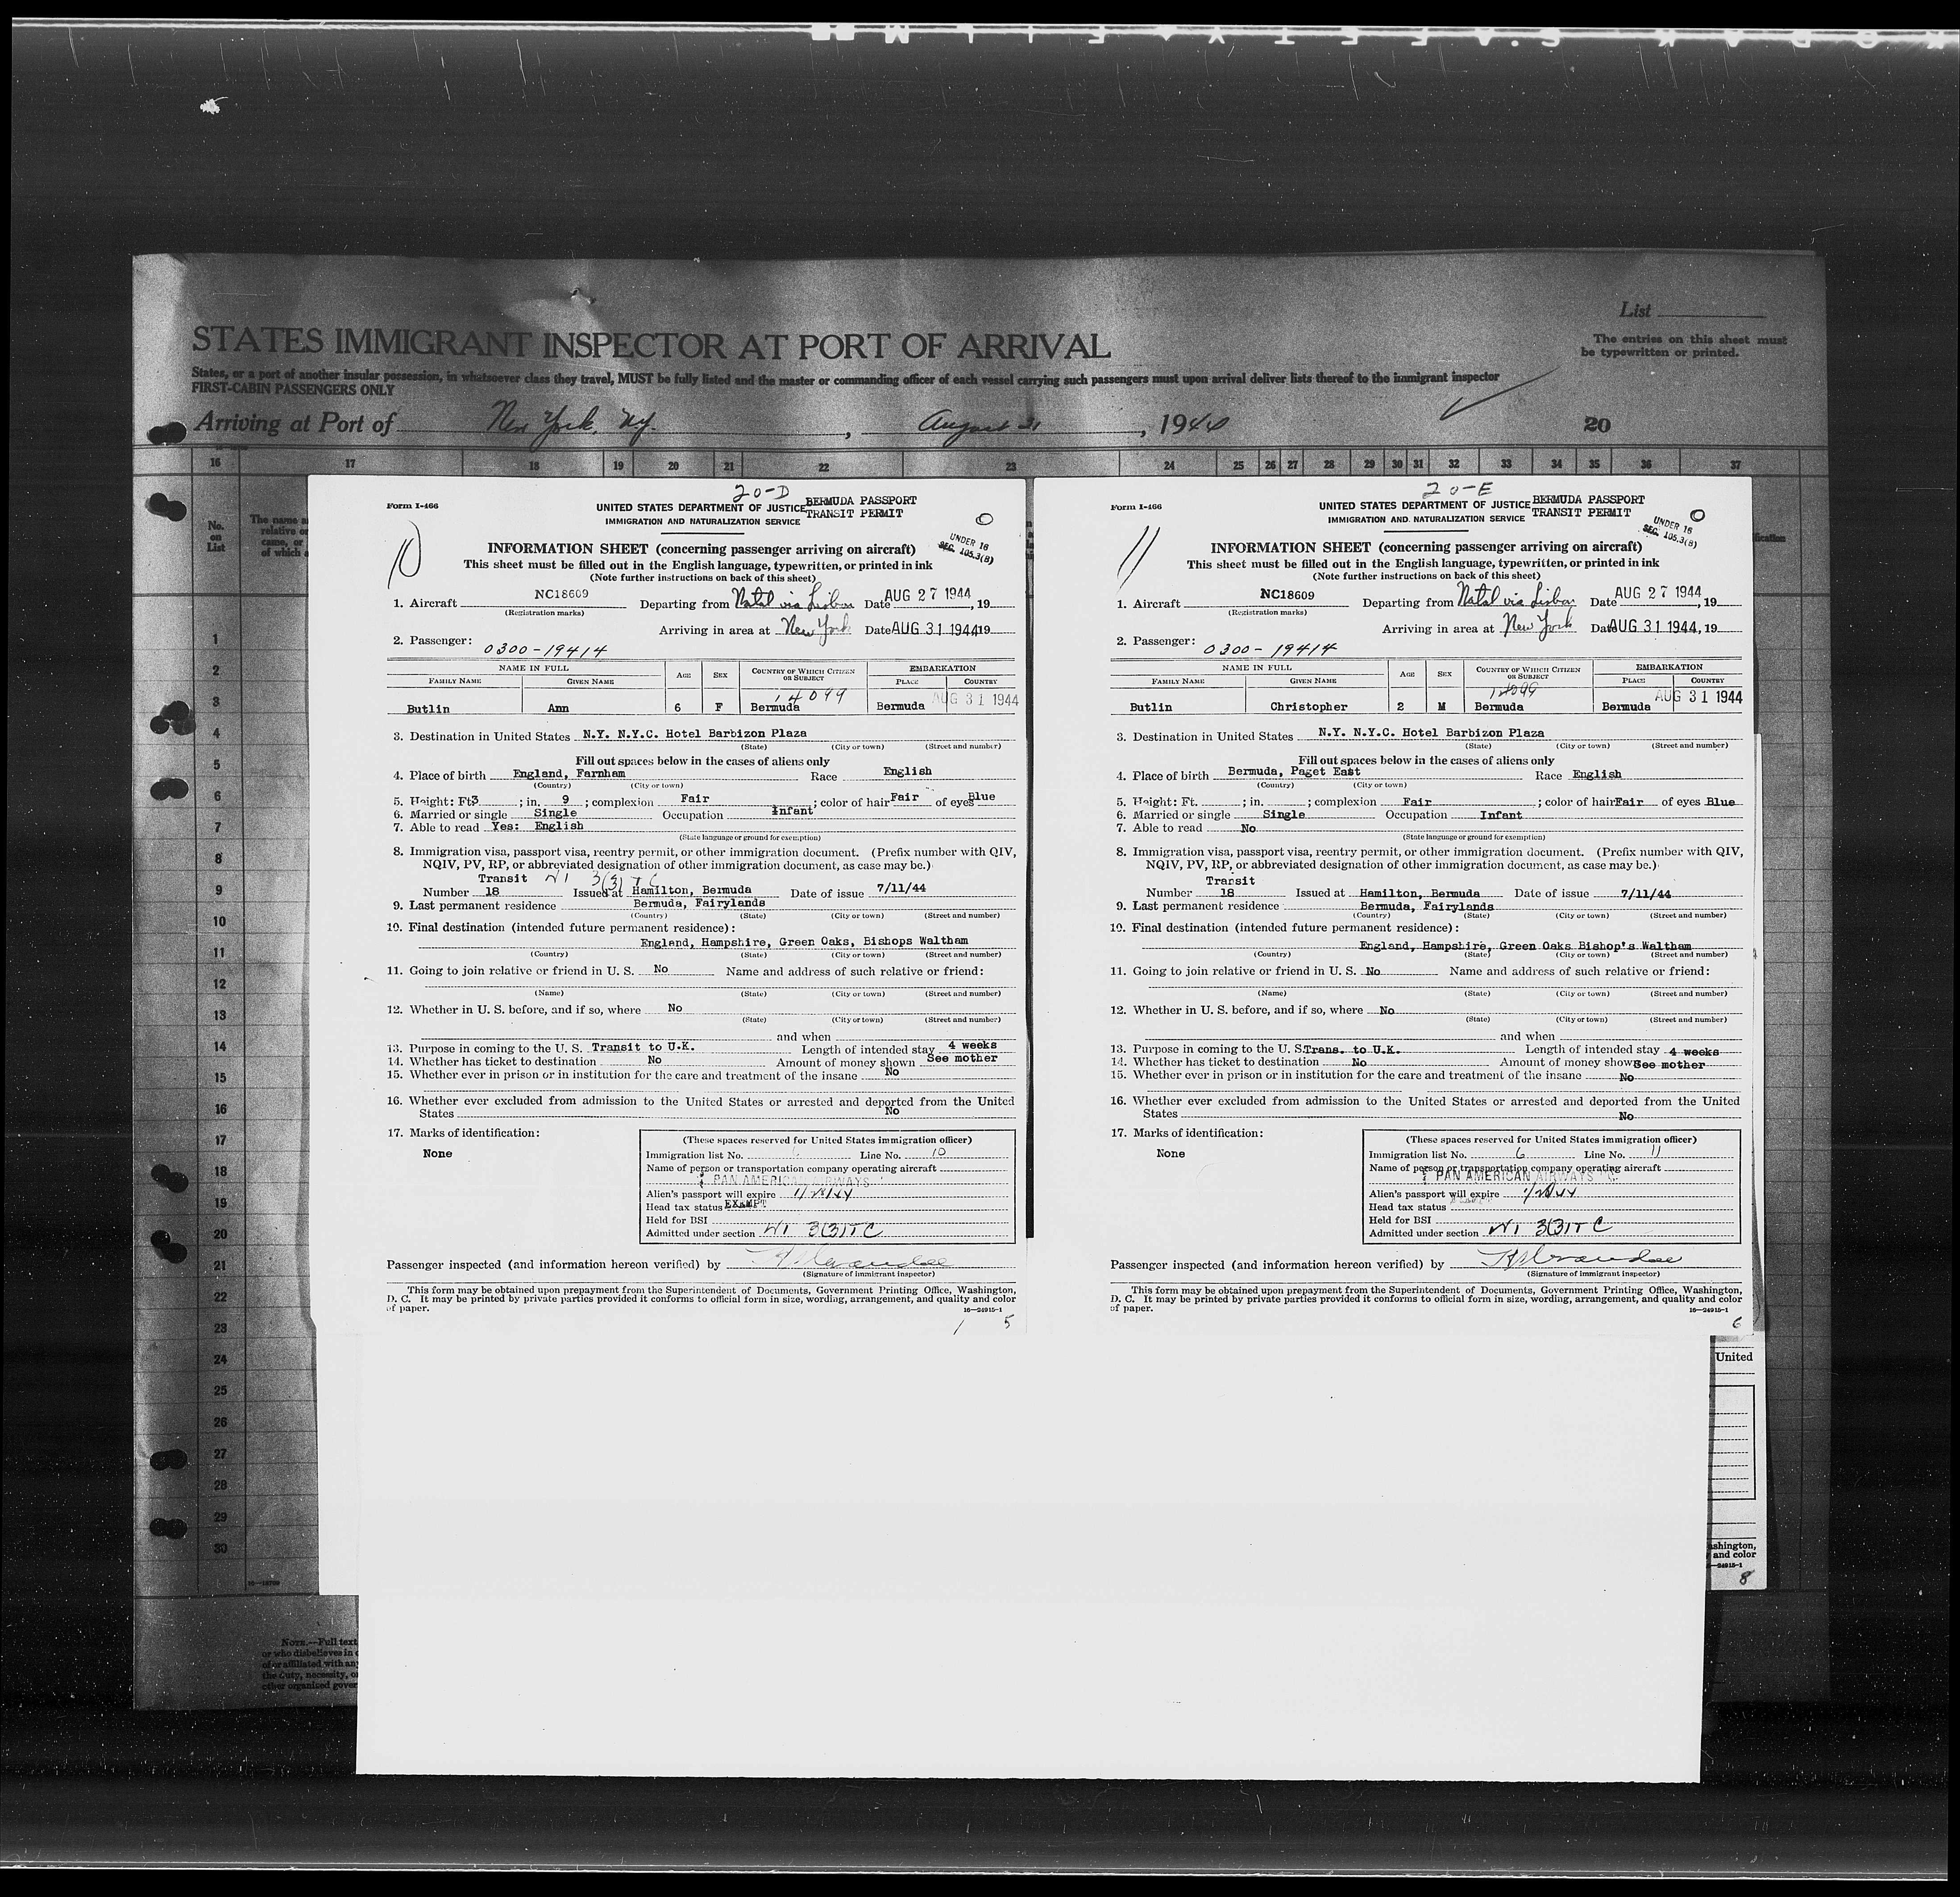 KODAK SAFETY FILM
List
STATES IMMIGRANT INSPECTOR AT PORT OF ARRIVAL
The entries on this sheet must
be typewritten or printed.
States, or a port of another insular possession, in whatsoever class they travel, MUST be fully listed and the master or commanding officer of each vessel carrying such passengers must upon arrival deliver lists thereof to the immigrant inspector
FIRST-CABIN PASSENGERS ONLY
Arriving at Port of New York, N.Y., August 31, 1944
20
16 17 18 19 20 21 22 23 24 25 26 27 28 29 30 31 32 33 34 35 36 37
No.
on
List
The name a
relative or
came, or
of which a
1
2
3
4
5
6
7
8
9
10
11
12
13
14
15
16
17
18
19
20
21
22
23
24
25
26
27
28
29
30
NOTE.—Full text
or who disbelieves in
of or affiliated with any
the duty, necessity, or
other organized gover
20-D
Form I-466
UNITED STATES DEPARTMENT OF JUSTICE
BERMUDA PASSPORT
IMMIGRATION AND NATURALIZATION SERVICE
TRANSIT PERMIT
10
UNDER 16
SEC. 105.3(B)
INFORMATION SHEET (concerning passenger arriving on aircraft)
This sheet must be filled out in the English language, typewritten, or printed in ink
(Note further instructions on back of this sheet)
1. Aircraft NC18609 Departing from Natal via Lisbon Date AUG 27 1944, 19
(Registration marks)
Arriving in area at New York Date AUG 31 1944 19
2. Passenger: 0300-19414
NAME IN FULL AGE SEX COUNTRY OF WHICH CITIZEN OR SUBJECT EMBARKATION
FAMILY NAME GIVEN NAME PLACE COUNTRY
14099 AUG 31 1944
Butlin Ann 6 F Bermuda Bermuda
3. Destination in United States N.Y. N.Y.C. Hotel Barbizon Plaza
(State) (City or town) (Street and number)
Fill out spaces below in the cases of aliens only
4. Place of birth England, Farnham Race English
(Country) (City or town)
5. Height: Ft. 3; in. 9; complexion Fair; color of hair Fair of eyes Blue
6. Married or single Single Occupation Infant
7. Able to read Yes: English
(State language or ground for exemption)
8. Immigration visa, passport visa, reentry permit, or other immigration document. (Prefix number with QIV,
NQIV, PV, RP, or abbreviated designation of other immigration document, as case may be.)
Transit 3(3) T C
Number 18 Issued at Hamilton, Bermuda Date of issue 7/11/44
9. Last permanent residence Bermuda, Fairylands
(Country) (State) (City or town) (Street and number)
10. Final destination (intended future permanent residence):
England, Hampshire, Green Oaks, Bishops Waltham
(Country) (State) (City or town) (Street and number)
11. Going to join relative or friend in U. S. No Name and address of such relative or friend:
(Name) (State) (City or town) (Street and number)
12. Whether in U. S. before, and if so, where No
(State) (City or town) (Street and number)
and when
13. Purpose in coming to the U. S. Transit to U.K. Length of intended stay 4 weeks
14. Whether has ticket to destination No Amount of money shown See mother
15. Whether ever in prison or in institution for the care and treatment of the insane No
16. Whether ever excluded from admission to the United States or arrested and deported from the United
States No
17. Marks of identification:
None
(These spaces reserved for United States immigration officer)
Immigration list No. 6 Line No. 10
Name of person or transportation company operating aircraft
PAN AMERICAN AIRWAYS
Alien's passport will expire
Head tax status EXEMPT
Held for BSI
Admitted under section 3(3) T C
Passenger inspected (and information hereon verified) by
(Signature of immigrant inspector)
This form may be obtained upon prepayment from the Superintendent of Documents, Government Printing Office, Washington,
D. C. It may be printed by private parties provided it conforms to official form in size, wording, arrangement, and quality and color
of paper.
16—24915-1
5
20-E
Form I-466
UNITED STATES DEPARTMENT OF JUSTICE
BERMUDA PASSPORT
IMMIGRATION AND NATURALIZATION SERVICE
TRANSIT PERMIT
11
UNDER 16
SEC. 105.3(B)
INFORMATION SHEET (concerning passenger arriving on aircraft)
This sheet must be filled out in the English language, typewritten, or printed in ink
(Note further instructions on back of this sheet)
1. Aircraft NC18609 Departing from Natal via Lisbon Date AUG 27 1944, 19
(Registration marks)
Arriving in area at New York Date AUG 31 1944, 19
2. Passenger: 0300-19414
NAME IN FULL AGE SEX COUNTRY OF WHICH CITIZEN OR SUBJECT EMBARKATION
FAMILY NAME GIVEN NAME PLACE COUNTRY
14099 AUG 31 1944
Butlin Christopher 2 M Bermuda Bermuda
3. Destination in United States N.Y. N.Y.C. Hotel Barbizon Plaza
(State) (City or town) (Street and number)
Fill out spaces below in the cases of aliens only
4. Place of birth Bermuda, Paget East Race English
(Country) (City or town)
5. Height: Ft. ; in. ; complexion Fair; color of hair Fair of eyes Blue
6. Married or single Single Occupation Infant
7. Able to read No
(State language or ground for exemption)
8. Immigration visa, passport visa, reentry permit, or other immigration document. (Prefix number with QIV,
NQIV, PV, RP, or abbreviated designation of other immigration document, as case may be.)
Transit
Number 18 Issued at Hamilton, Bermuda Date of issue 7/11/44
9. Last permanent residence Bermuda, Fairylands
(Country) (State) (City or town) (Street and number)
10. Final destination (intended future permanent residence):
England, Hampshire, Green Oaks Bishop's Waltham
(Country) (State) (City or town) (Street and number)
11. Going to join relative or friend in U. S. No Name and address of such relative or friend:
(Name) (State) (City or town) (Street and number)
12. Whether in U. S. before, and if so, where No
(State) (City or town) (Street and number)
and when
13. Purpose in coming to the U. S. Trans. to U.K. Length of intended stay 4 weeks
14. Whether has ticket to destination No Amount of money shown See mother
15. Whether ever in prison or in institution for the care and treatment of the insane No
16. Whether ever excluded from admission to the United States or arrested and deported from the United
States No
17. Marks of identification:
None
(These spaces reserved for United States immigration officer)
Immigration list No. 6 Line No. 11
Name of person or transportation company operating aircraft
PAN AMERICAN AIRWAYS
Alien's passport will expire
Head tax status
Held for BSI
Admitted under section 3(3) T C
Passenger inspected (and information hereon verified) by
(Signature of immigrant inspector)
This form may be obtained upon prepayment from the Superintendent of Documents, Government Printing Office, Washington,
D. C. It may be printed by private parties provided it conforms to official form in size, wording, arrangement, and quality and color
of paper.
16—24915-1
6
United
ashington,
and color
—24915-1
8